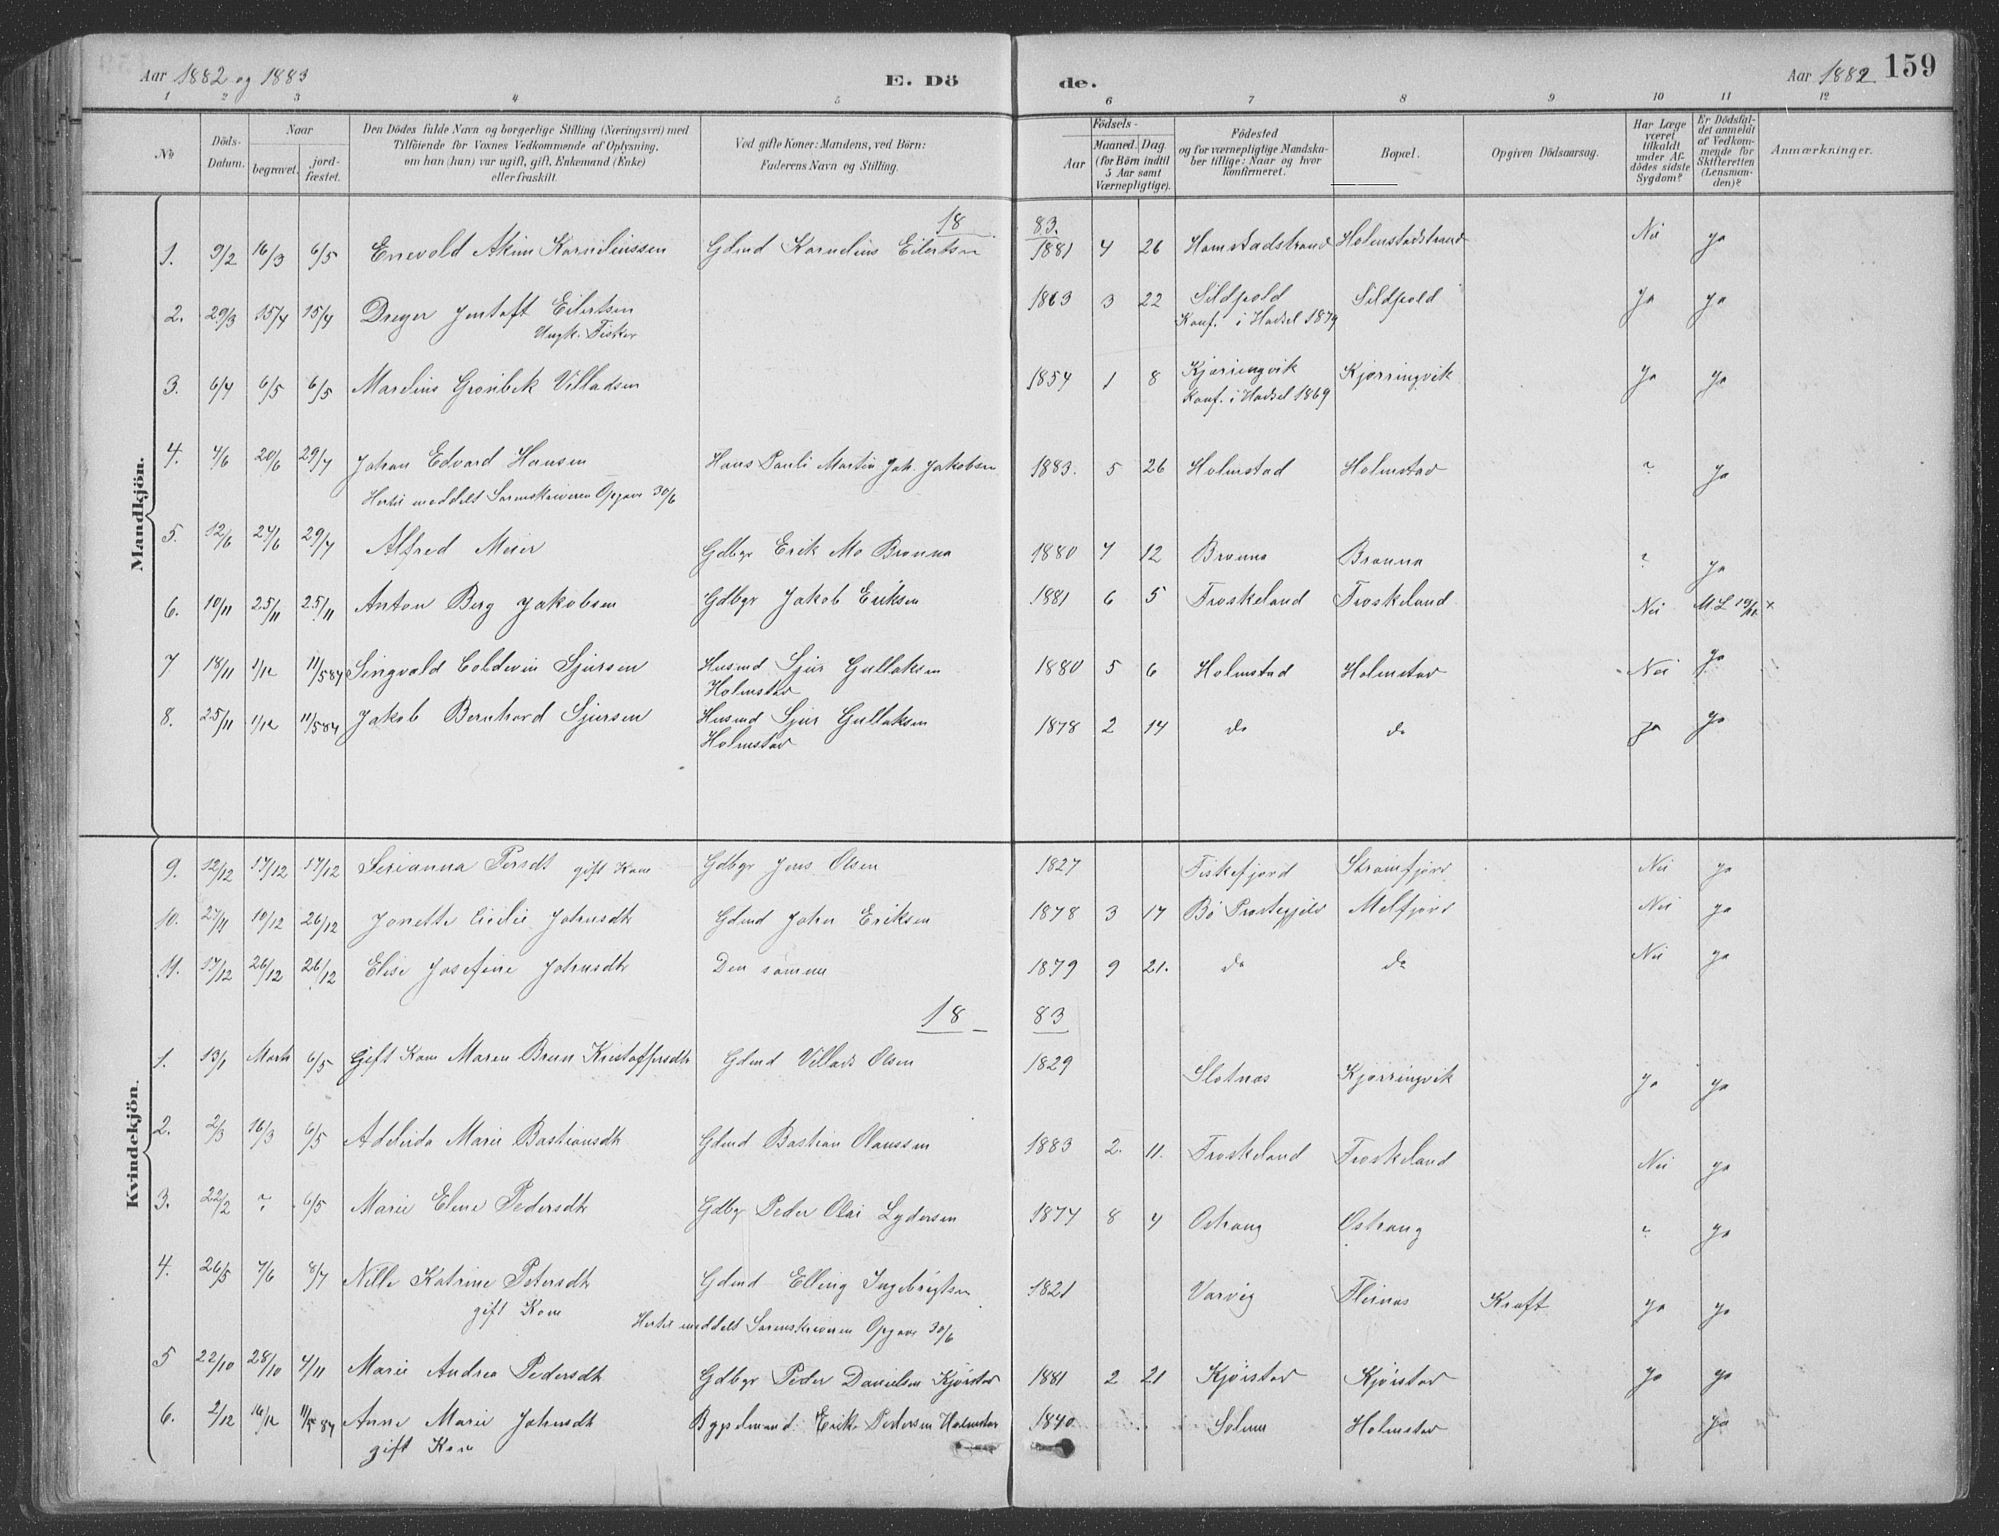 Aar 1882 og 1883
E. Dö
de.
Aar 1882
159
1 2 3 4 5 6 7 8 9 10 11 12
No
Döds-Datum.
Naar
begravet.
jordfæstet.
Den Dödes fulde Navn og borgerlige Stilling (Næringsvei) med
Tilföiende for Voxnes Vedkommende af Oplysning,
om han (hun) var ugift, gift, Enkemand (Enke)
eller fraskilt.
Ved gifte Koner: Mandens, ved Börn:
Faderens Navn og Stilling.
Födsels-
Aar
Maaned. Dag
(for Börn indtil
5 Aar samt
Værnepligtige).
Födested
og for værnepligtige Mandskaber tillige: Naar og hvor
konfirmeret.
Bopæl.
Opgiven Dödsaarsag.
Har Læge
været
tilkaldt
under Afdödes sidste
Sygdom?
Er Dödsfaldet anmeldt
af Vedkommende for
Skifteretten
(Lensmanden)?
Anmærkninger.
Mandkjön.
18 83.
1. 9/2 16/3 6/5 Enevold Akim Korneliussen Gdmd Kornelius Eilertsen 1881 4 26 Homstadstrand Holmstadstrand Nei ja
2. 29/3 15/4 15/4 Dreyer Jentoft Eilertsen 1863 3 22 Sildpold Sildpold Ja ja
Ungk. Fisker Konf. i Hadsel 1879
3. 6/4 6/5 6/5 Marelius Grönbek Villadsen 1854 1 8 Kjørringvik Kjørringvik Ja ja
Konf. i Hadsel 1869
4. 4/6 20/6 29/7 Johan Edvard Hansen Hans Pauli Martin Joh. Jakobsen 1883. 5 26 Holmstad Holmstad ? Ja
Hertil meddelt Sorenskriveren Opgave 30/6
5. 12/6 24/6 29/7 Alfred Meier Gdbgr Erik Mo Brønna 1880 7 12 Brønna Brønna ? Ja
6. 10/11 25/11 25/11 Anton Berg Jakobsen Gdbgr Jakob Eriksen 1881 6 5 Froskeland Froskeland Nei M.L 19/12 x
7. 18/11 1/12 11/5 84 Singvald Coldevin Sjursen Husmd Sjur Gullaksen 1880 5 6 Holmstad Holmstad Nei ja
Holmstad
8. 25/11 1/12 11/5 84 Jakob Bernhard Sjursen Husmd Sjur Gullaksen 1878 2 14 do do ja ja
Holmstad
Kvindekjön.
9. 12/12 17/12 17/12 Serianna Persdt gift Kone Gdbgr Jens Olsen 1827 Fiskefjord Strømfjord Nei ja
10. 27/11 10/12 26/12 Jonette Cecilie Johnsdtr Gdmd John Eriksen 1878 3 17 Bö Præstegjeld Melfjord Nei ja
11. 17/12 26/12 26/12 Elise Josefine Johnsdtr Den samme 1879 9 21. do do Nei ja
18 83
1. 13/1 Marts 6/5 Gift Kone Maren Brun Kristoffersdtr Gdmd Villads Olsen 1829 Slotnæs Kjørringvik ja ja
2. 2/3 16/3 6/5 Adeleida Marie Bastiansdtr Gdmd Bastian Olaussen 1883 2. 11. Froskeland Froskeland Nei ja
3. 22/2 ? 6/5 Marie Elene Pedersdtr Gdbgr Peder Olai Lydersen 1877 8 4 Ostrang Ostrang ? ja
4. 26/5 7/6 8/7 Nelle Katrine Petersdtr Gdmd Elling Ingebrigtsen 1821 Varvig Fleinæs Kræft ja ja
gift Kone Hertil meddelt Sorenskriveren Opgave 30/6
5 22/10 28/10 4/11 Marie Andrea Pedersdtr Gdbgr Peder Danielsen Kjørstad 1881 2 21 Kjørstad Kjørstad Ja ja
6. 2/12 16/12 11/5 84 Anne Marie Johnsdtr Bygselmand: Erik Pedersen Holmstad 1840 Solem Holmstad ja
gift Kone